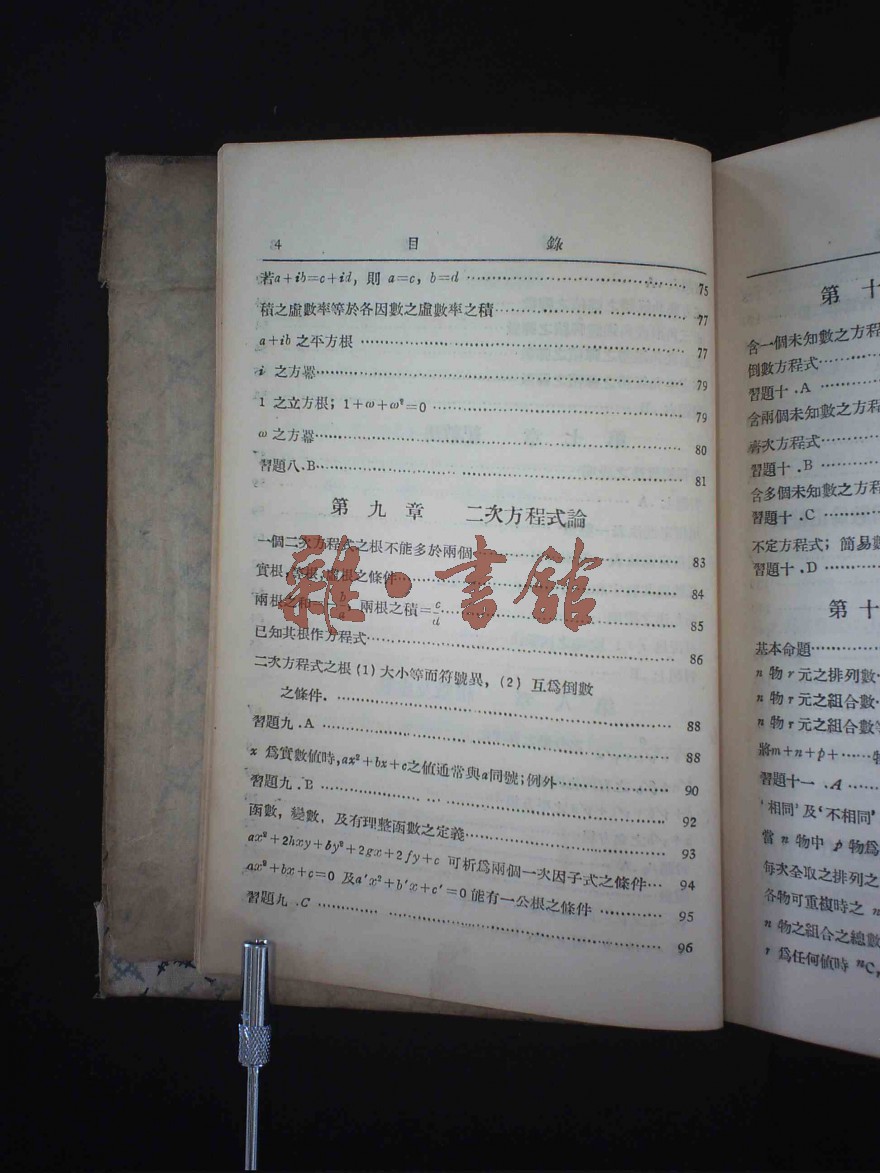 4 目 錄
若a+ib=c+id, 則 a=c, b=d ………… 75
積之虛數率等於各因數之虛數率之積………… 77
a+ib 之平方根 ………… 77
i 之方羃………… 79
1 之立方根; 1+ω+ω²=0 ………… 79
ω 之方羃………… 80
習題八.B………… 81
第 九 章 二次方程式論
一個二次方程式之根不能多於兩個………… 83
實根,等根,虛根之條件………… 84
兩根之和=-b/a, 兩根之積=c/d………… 85
已知其根作方程式………… 86
二次方程式之根(1)大小等而符號異, (2) 互爲倒數
之條件. ………… 88
習題九.A ………… 88
x 爲實數値時,ax²+bx+c之値通常與a同號;例外………… 90
習題九.B ………… 92
函數, 變數, 及有理整函數之定義………… 93
ax²+2hxy+by²+2gx+2fy+c 可析爲兩個一次因子式之條件… 94
ax²+bx+c=0 及a′x²+b′x+c′=0能有一公根之條件 ………… 95
習題九.C ………… 96
雜·書館
第 十
含一個未知數之方程
倒數方程式……
習題十.A ……
含兩個未知數之方
齊次方程式……
習題十.B ……
含多個未知數之方程
習題十.C ……
不定方程式; 簡易
習題十.D ……
第 十
基本命題……
n 物 r 元之排列數
n 物 r 元之組合數
n 物 r 元之組合數
將m+n+p+……
習題十一.A ……
'相同'及'不相同'
當 n 物中 p 物爲
每次全取之排列之
各物可重複時之
n 物之組合之總數
r 爲任何値時 ⁿCᵣ